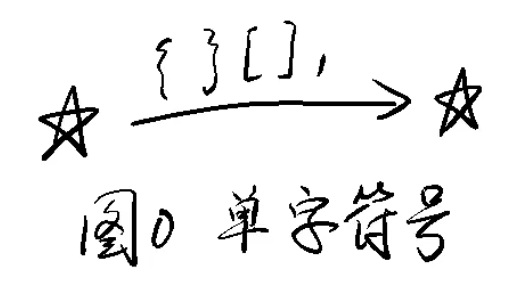 { } [ ] ,
图0 单字符号